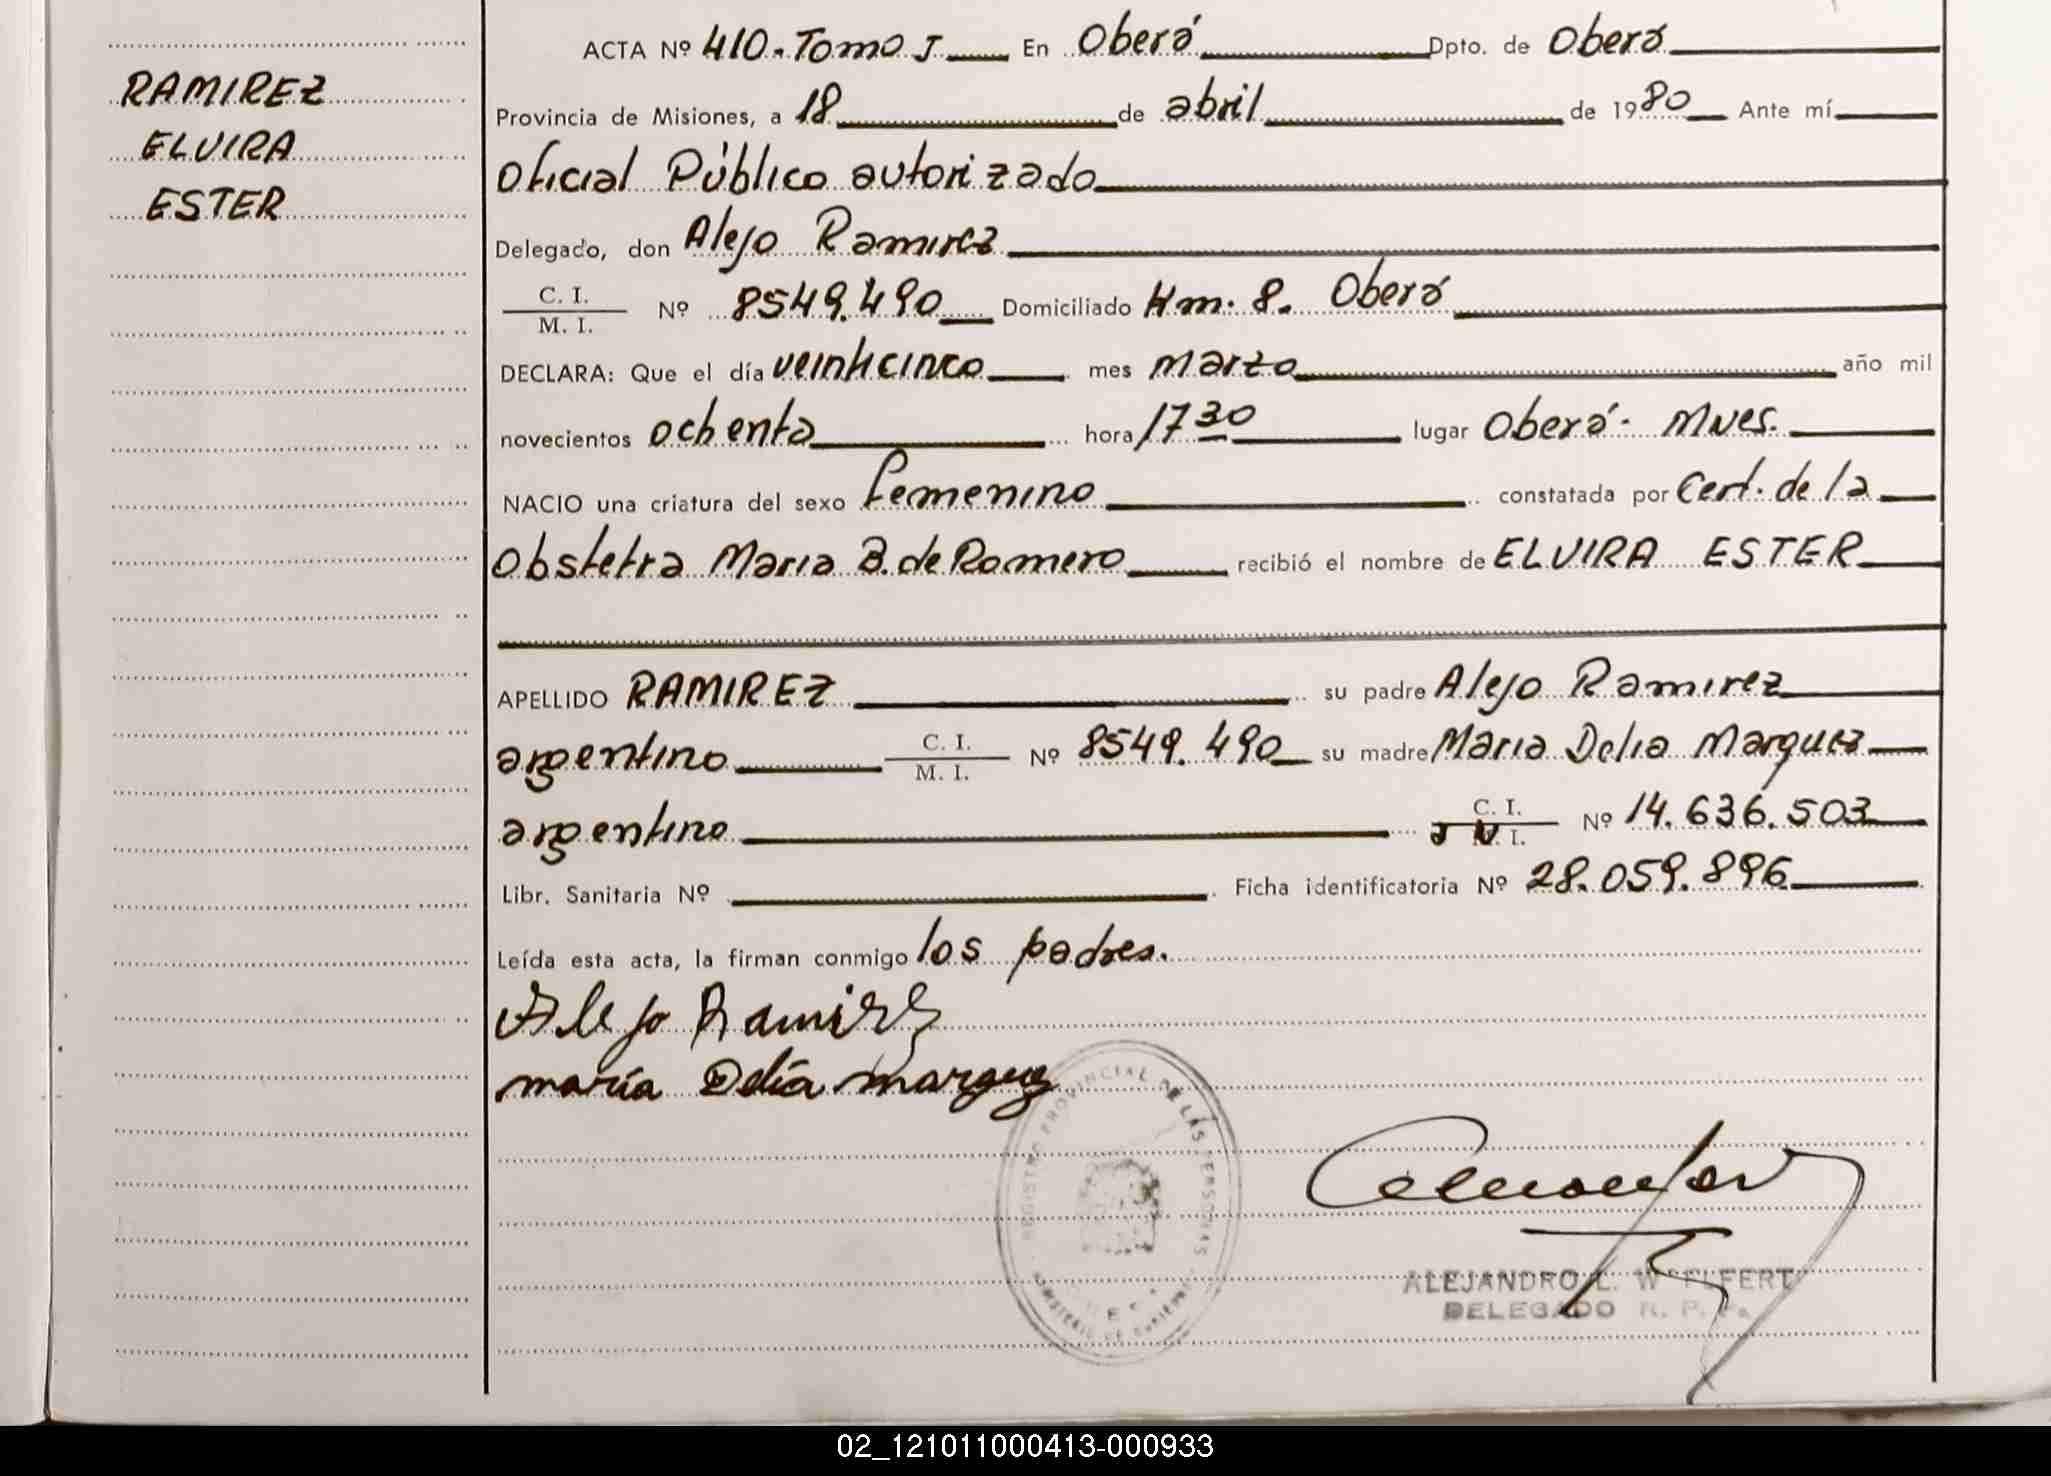 RAMIREZ
ELVIRA
ESTER
ACTA Nº 410. Tomo I En Oberá Dpto. de Oberá
Provincia de Misiones, a 18 de abril de 1980 Ante mí
Oficial Público autorizado
Delegado, don Alejo Ramirez
C. I.
M. I. Nº 8549.490 Domiciliado Km. 8. Oberá
DECLARA: Que el día veinticinco mes marzo año mil
novecientos ochenta hora 17 30 lugar Oberá. Mnes.
NACIO una criatura del sexo femenino constatada por Cert. de la
Obstetra Maria B. de Romero recibió el nombre de ELVIRA ESTER
APELLIDO RAMIREZ su padre Alejo Ramirez
argentino C. I.
M. I. Nº 8549.490 su madre Maria Delia Marquez
argentino C. I.
Nº 14.636.503
Libr. Sanitaria Nº Ficha identificatoria Nº 28.059.896
Leída esta acta, la firman conmigo los padres.
Alejo Ramirez
maría Delia marquez
REGISTRO PROVINCIAL DE LAS PERSONAS
MINISTERIO DE GOBIERNO
ALEJANDRO L.
DELEGADO R. P. P.
02_121011000413-000933